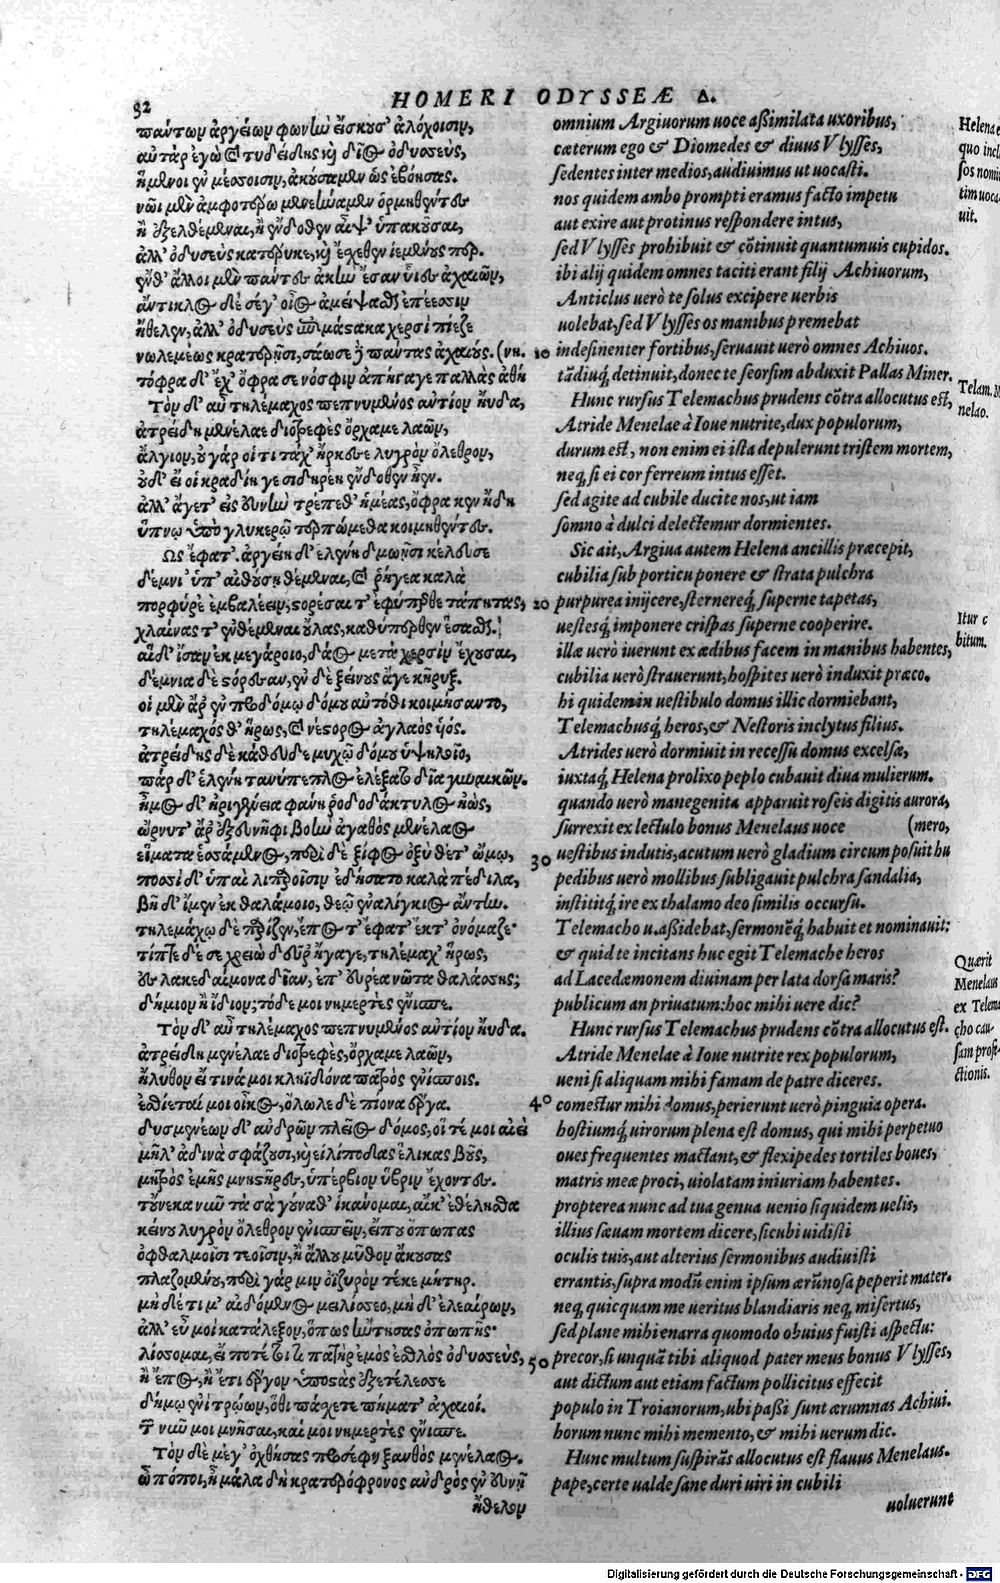 92
HOMERI ODYSSEÆ Δ.
πάντων ἀργείων φωνὴν ἴσκουσ' ἀλόχοισιν,
αὐτὰρ ἐγὼ καὶ τυδείδης καὶ δῖος ὀδυσσεὺς,
ἥμενοι ἐν μέσσοισιν, ἀκούσαμεν ὡς ἐβόησας.
νῶι μὲν ἀμφοτέρω μενεήναμεν ὁρμηθέντε
ἢ ἐξελθέμεναι, ἢ ἔνδοθεν αἶψ' ὑπακοῦσαι,
ἀλλ' ὀδυσεὺς κατέρυκε, καὶ ἔσχεθεν ἱεμένους περ.
ἔνθ' ἄλλοι μὲν πάντες ἀκὴν ἔσαν υἷες ἀχαιῶν,
ἄντικλος δὲ σέγ' οἶος ἀμείψασθαι ἐπέεσσιν
ἤθελεν, ἀλλ' ὀδυσεὺς ἐπὶ μάστακα χερσὶ πίεζε
νωλεμέως κρατερῇσι, σάωσε δὲ πάντας ἀχαιούς. (νη.
τόφρα δ' ἔχ' ὄφρα σε νόσφιν ἀπήγαγε παλλὰς ἀθή
Τὸν δ' αὖ τηλέμαχος πεπνυμένος ἀντίον ηὔδα,
ἀτρείδη μενέλαε διοτρεφὲς ὄρχαμε λαῶν,
ἄλγιον, οὐ γάρ οἱ τι τάχ' ἤρκεσε λυγρὸν ὄλεθρον,
οὐδ' εἴ οἱ κραδίη γε σιδηρέη ἔνδοθεν ἦεν.
ἀλλ' ἄγετ' εἰς εὐνὴν τρέπεθ' ἡμέας, ὄφρα κεν ἤδη
ὕπνῳ ὑπὸ γλυκερῷ τερπώμεθα κοιμηθέντες.
Ὣς ἔφατ'. ἀργείη δ' ἑλένη δμωῇσι κέλευσε
δέμνι' ὑπ' αἰθούσῃ θέμεναι, καὶ ῥήγεα καλὰ
πορφύρε' ἐμβαλέειν, στορέσαι τ' ἐφύπερθε τάπητας,
χλαίνας τ' ἐνθέμεναι οὔλας, καθύπερθεν ἕσασθαι.
αἱ δ' ἴσαν ἐκ μεγάροιο, δάος μετὰ χερσὶν ἔχουσαι,
δέμνια δὲ στόρεσαν, ἐν δὲ ξείνους ἄγε κῆρυξ.
οἱ μὲν ἄρ' ἐν προδόμῳ δόμου αὐτόθι κοιμήσαντο,
τηλέμαχός θ' ἥρως, καὶ νέστορος ἀγλαὸς υἱός.
ἀτρείδης δὲ κάθευδε μυχῷ δόμου ὑψηλοῖο,
πὰρ δ' ἑλένη τανύπεπλος ἐλέξατο δῖα γυναικῶν.
ἦμος δ' ἠριγένεια φάνη ῥοδοδάκτυλος ἠώς,
ὤρνυτ' ἄρ' ἐξ εὐνῆφι βοὴν ἀγαθὸς μενέλαος
εἵματα ἑσσάμενος, περὶ δὲ ξίφος ὀξὺ θέτ' ὤμῳ,
ποσσὶ δ' ὑπαὶ λιπαροῖσιν ἐδήσατο καλὰ πέδιλα,
βῆ δ' ἴμεν ἐκ θαλάμοιο, θεῷ ἐναλίγκιος ἄντην.
τηλεμάχῳ δὲ παρῖζεν, ἔπος τ' ἔφατ' ἔκτ' ὀνόμαζε·
τίπτε δέ σε χρειὼ δεῦρ' ἤγαγε, τηλέμαχ' ἥρως,
ἐς λακεδαίμονα δῖαν, ἐπ' εὐρέα νῶτα θαλάσσης;
δήμιον ἢ ἴδιον; τόδε μοι νημερτὲς ἔνισπε.
Τὸν δ' αὖ τηλέμαχος πεπνυμένος ἀντίον ηὔδα.
ἀτρείδη μενέλαε διοτρεφὲς, ὄρχαμε λαῶν,
ἤλυθον εἴ τινά μοι κληηδόνα πατρὸς ἐνίσποις.
ἐσθίεταί μοι οἶκος, ὄλωλε δὲ πίονα ἔργα.
δυσμενέων δ' ἀνδρῶν πλεῖος δόμος, οἵ τέ μοι αἰεὶ
μῆλ' ἀδινὰ σφάζουσι, καὶ εἰλίποδας ἕλικας βοῦς,
μητρὸς ἐμῆς μνηστῆρες, ὑπέρβιον ὕβριν ἔχοντες.
τοὔνεκα νῦν τὰ σὰ γούναθ' ἱκάνομαι, αἴ κ' ἐθέλῃσθα
κείνου λυγρὸν ὄλεθρον ἐνισπεῖν, εἴ που ὄπωπας
ὀφθαλμοῖσι τεοῖσιν, ἢ ἄλλου μῦθον ἄκουσας
πλαζομένου, περὶ γάρ μιν ὀϊζυρὸν τέκε μήτηρ.
μὴ δέ τι μ' αἰδόμενος μειλίσσεο, μὴ δ' ἐλεαίρων,
ἀλλ' εὖ μοι κατάλεξον, ὅπως ἤντησας ὀπωπῆς·
λίσσομαι, εἴ ποτέ τοί τι πατὴρ ἐμὸς ἐσθλὸς ὀδυσσεύς,
ἢ ἔπος, ἠὲ τι ἔργον ὑποστὰς ἐξετέλεσσε
δήμῳ ἔνι τρώων, ὅθι πάσχετε πήματ' ἀχαιοί.
τῶν νῦν μοι μνῆσαι, καί μοι νημερτὲς ἔνισπε.
Τὸν δὲ μέγ' ὀχθήσας προσέφη ξανθὸς μενέλαος.
ὢ πόποι, ἦ μάλα δὴ κρατερόφρονος ἀνδρὸς ἐν εὐνῇ
ἤθελον
omnium Argiuorum uoce aßimilata uxoribus,
cæterum ego & Diomedes & diuus Vlysses,
sedentes inter medios, audiuimus ut uocasti.
nos quidem ambo prompti eramus facto impetu
aut exire aut protinus respondere intus,
sed Vlysses prohibuit & cõtinuit quantumuis cupidos.
ibi alij quidem omnes taciti erant filij Achiuorum,
Anticlus uerò te solus excipere uerbis
uolebat, sed Vlysses os manibus premebat
10 indesinenter fortibus, seruauit uerò omnes Achiuos.
tãdiuq́, detinuit, donec te seorsim abduxit Pallas Miner.
Hunc rursus Telemachus prudens cõtra allocutus est,
Atride Menelae à Ioue nutrite, dux populorum,
durum est, non enim ei ista depulerunt tristem mortem,
neq, si ei cor ferreum intus esset.
sed agite ad cubile ducite nos, ut iam
somno à dulci delectemur dormientes.
Sic ait, Argiua autem Helena ancillis præcepit,
cubilia sub porticu ponere & strata pulchra
20 purpurea inijcere, sternereq́, superne tapetas,
uestesq́, imponere crispas superne cooperire.
illæ uerò iuerunt ex ædibus facem in manibus habentes,
cubilia uerò strauerunt, hospites uerò induxit præco.
hi quidem in uestibulo domus illic dormiebant,
Telemachusq́, heros, & Nestoris inclytus filius.
Atrides uerò dormiuit in recessu domus excelsæ,
iuxtaq́, Helena prolixo peplo cubauit diua mulierum.
quando uerò manegenita apparuit roseis digitis aurora,
surrexit ex lectulo bonus Menelaus uoce (mero,
30 uestibus indutis, acutum uerò gladium circumposuit hu
pedibus uerò mollibus subligauit pulchra sandalia,
instititq́, ire ex thalamo deo similis occursu.
Telemacho u. aßidebat, sermonẽq́, habuit et nominauit:
& quid te incitans huc egit Telemache heros
ad Lacedæmonem diuinam per lata dorsa maris?
publicum an priuatum: hoc mihi uere dic?
Hunc rursus Telemachus prudens cõtra allocutus est.
Atride Menelae à Ioue nutrite rex populorum,
ueni si aliquam mihi famam de patre diceres.
40 comestur mihi domus, perierunt uerò pinguia opera.
hostiumq́, uirorum plena est domus, qui mihi perpetuo
oues frequentes mactant, & flexipedes tortiles boues,
matris meæ proci, uiolatam iniuriam habentes.
propterea nunc ad tua genua uenio siquidem uelis,
illius sæuam mortem dicere, sicubi uidisti
oculis tuis, aut alterius sermonibus audiuisti
errantis, supra modũ enim ipsum ærũnosa peperit mater.
neq, quicquam me ueritus blandiaris neq, misertus,
sed plane mihi enarra quomodo obuius fuisti aspectu:
50 precor, si unquã tibi aliquod pater meus bonus Vlysses,
aut dictum aut etiam factum pollicitus effecit
populo in Troianorum, ubi paßi sunt ærumnas Achiui.
horum nunc mihi memento, & mihi uerum dic.
Hunc multum suspirãs allocutus est flauus Menelaus.
papæ, certe ualde sane duri uiri in cubili
uoluerunt
Helena e
quo incl.
sos nomi
tim uoca
uit.
Telam. M
nelao.
Itur c
bitum.
Quærit
Menelaus
ex Telema
cho cau-
sam profe-
ctionis.
Digitalisierung gefördert durch die Deutsche Forschungsgemeinschaft - DFG